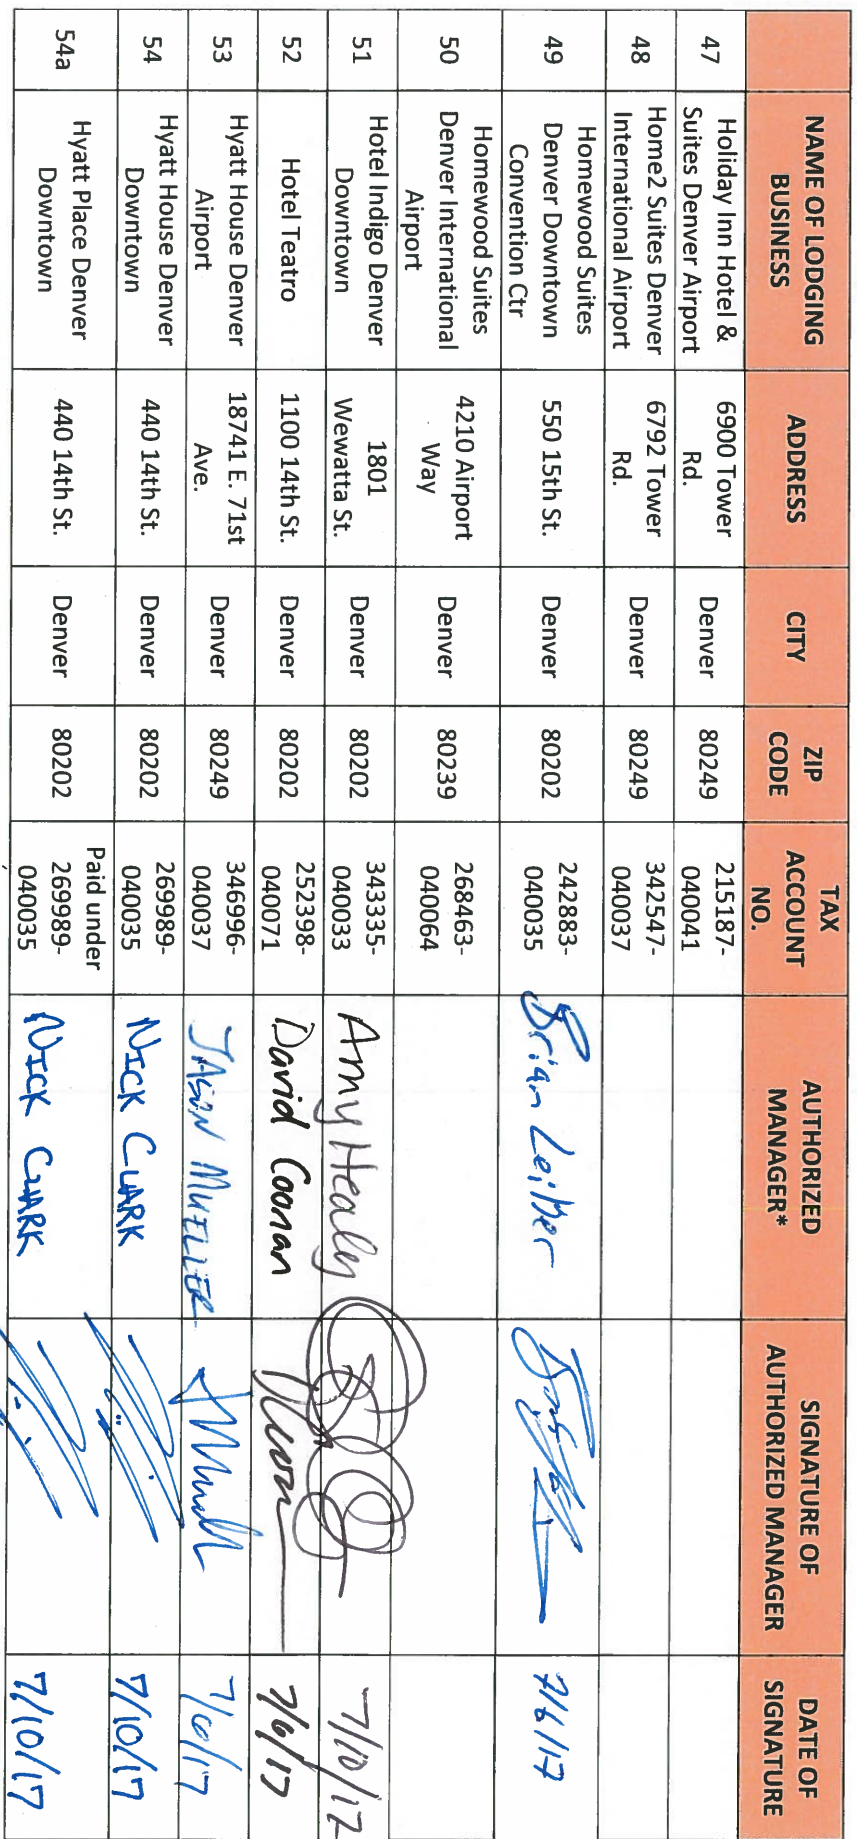 NAME OF LODGING
BUSINESS
ADDRESS
CITY
ZIP
CODE
TAX
ACCOUNT
NO.
AUTHORIZED
MANAGER*
SIGNATURE OF
AUTHORIZED MANAGER
DATE OF
SIGNATURE
47
Holiday Inn Hotel &
Suites Denver Airport
6900 Tower
Rd.
Denver
80249
215187-
040041
48
Home2 Suites Denver
International Airport
6792 Tower
Rd.
Denver
80249
342547-
040037
49
Homewood Suites
Denver Downtown
Convention Ctr
550 15th St.
Denver
80202
242883-
040035
Brian
7/6/17
50
Homewood Suites
Denver International
Airport
4210 Airport
Way
Denver
80239
268463-
040064
51
Hotel Indigo Denver
Downtown
1801
Wewatta St.
Denver
80202
343335-
040033
Amy Healy
7/10/17
52
Hotel Teatro
1100 14th St.
Denver
80202
252398-
040071
David Coonan
7/6/17
53
Hyatt House Denver
Airport
18741 E. 71st
Ave.
Denver
80249
346996-
040037
JASON MUELLER
54
Hyatt House Denver
Downtown
440 14th St.
Denver
80202
269989-
040035
NICK CLARK
7/10/17
54a
Hyatt Place Denver
Downtown
440 14th St.
Denver
80202
Paid under
269989-
040035
NICK CLARK
7/10/17